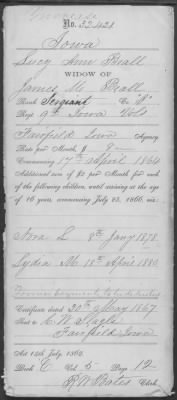 Increase
No. 32421
Iowa
Lucy Ann Beall
WIDOW OF
James M. Beall
Rank Sergeant Co. "B"
Regt 9th Iowa Vols
Fairfield Iowa Agency
Rate per Month, $ 8
Commencing 17th April 1864
Additional sum of $2 per Month for each
of the following children, until arriving at the age
of 16 years, commencing July 25, 1866, viz:
Nora L. 8th Jany 1878
Lydia M. 18th April 1880
Former payments to be deducted
Certificate dated 20th May 1867
Sent to C. W.
Fairfield Iowa
Act 14th July, 1862.
Book C Vol. 5 Page 12
Clerk.